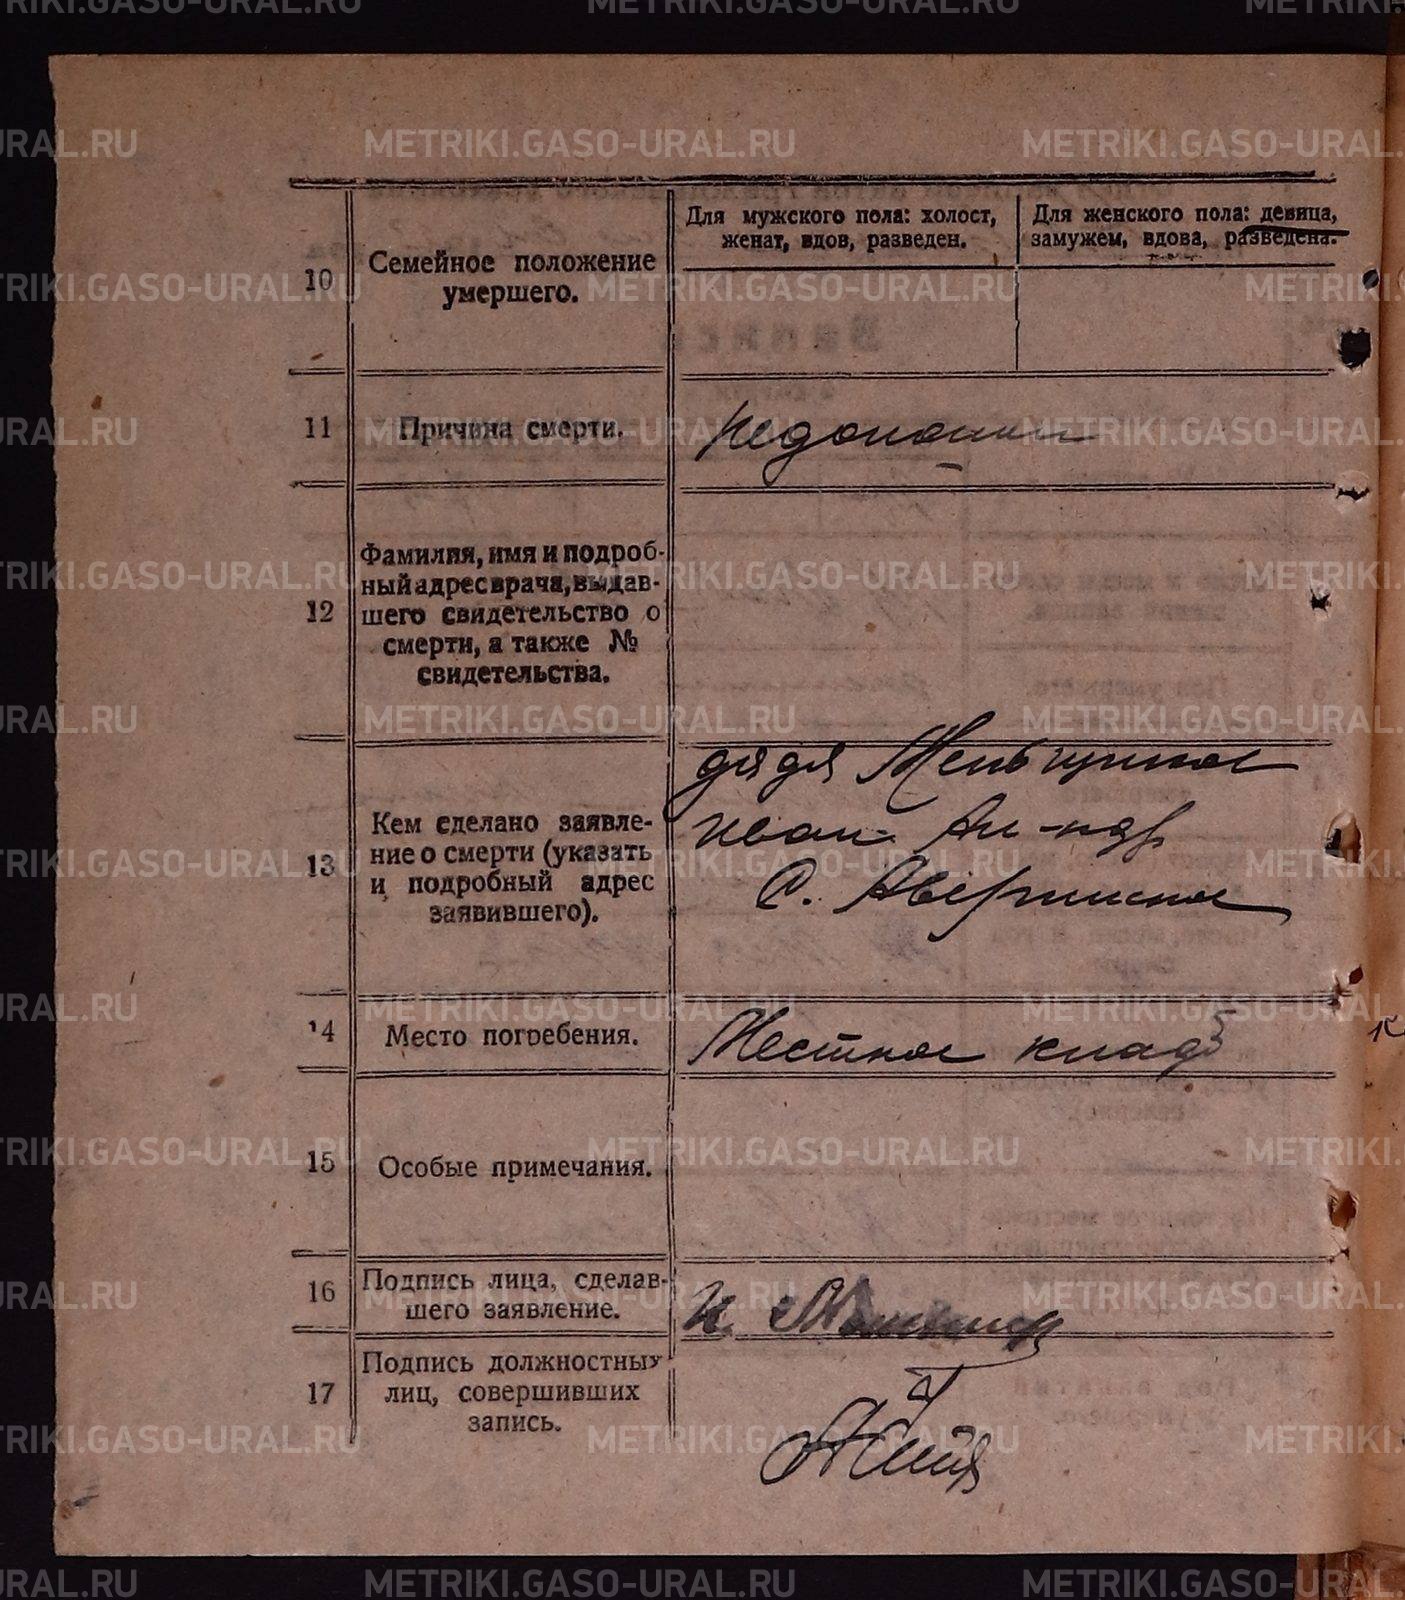 Для мужского пола: холост,
женат, вдов, разведен.
Для женского пола: девица,
замужем, вдова, разведена.
10
Семейное положение
умершего.
11
Причина смерти.
12
Фамилия, имя и подроб-
ный адрес врача, выдав-
шего свидетельство о
смерти, а также №
свидетельства.
13
Кем сделано заявле-
ние о смерти (указать
и подробный адрес
заявившего).
дядя Меньщиков
Иван Ал-ндр
С. Аверинское
14
Место погребения.
Местное кладб
15
Особые примечания.
16
Подпись лица, сделав-
шего заявление.
И.
17
Подпись должностных
лиц, совершивших
запись.
METRIKI.GASO-URAL.RU